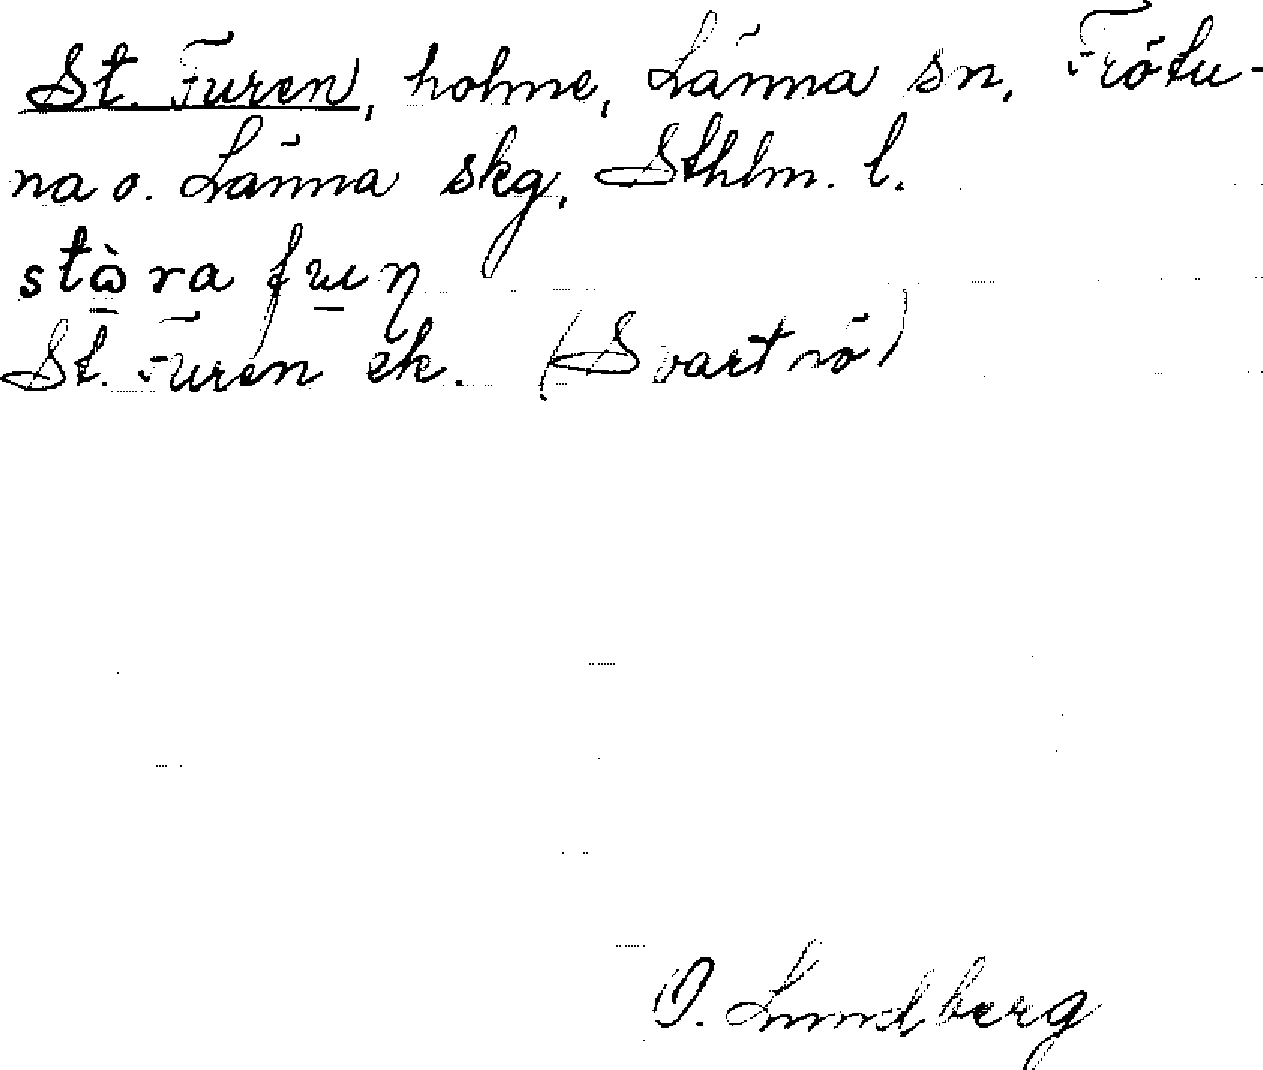 St. Furen, holme, Länna sn, Frötu-
na o. Länna skg, Sthlm. l.
stɷ̀ra fuṇ
St. Furen ek. (Svartnö)
O. Lundberg